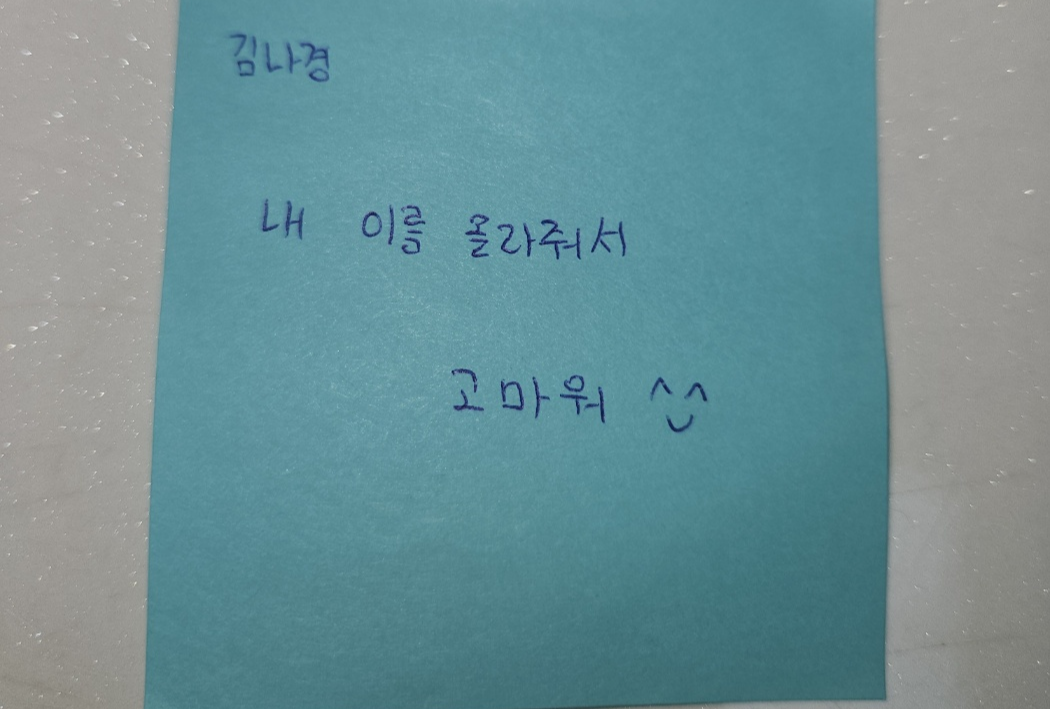 김나경
내 이름 몰라줘서
고마워 ^^